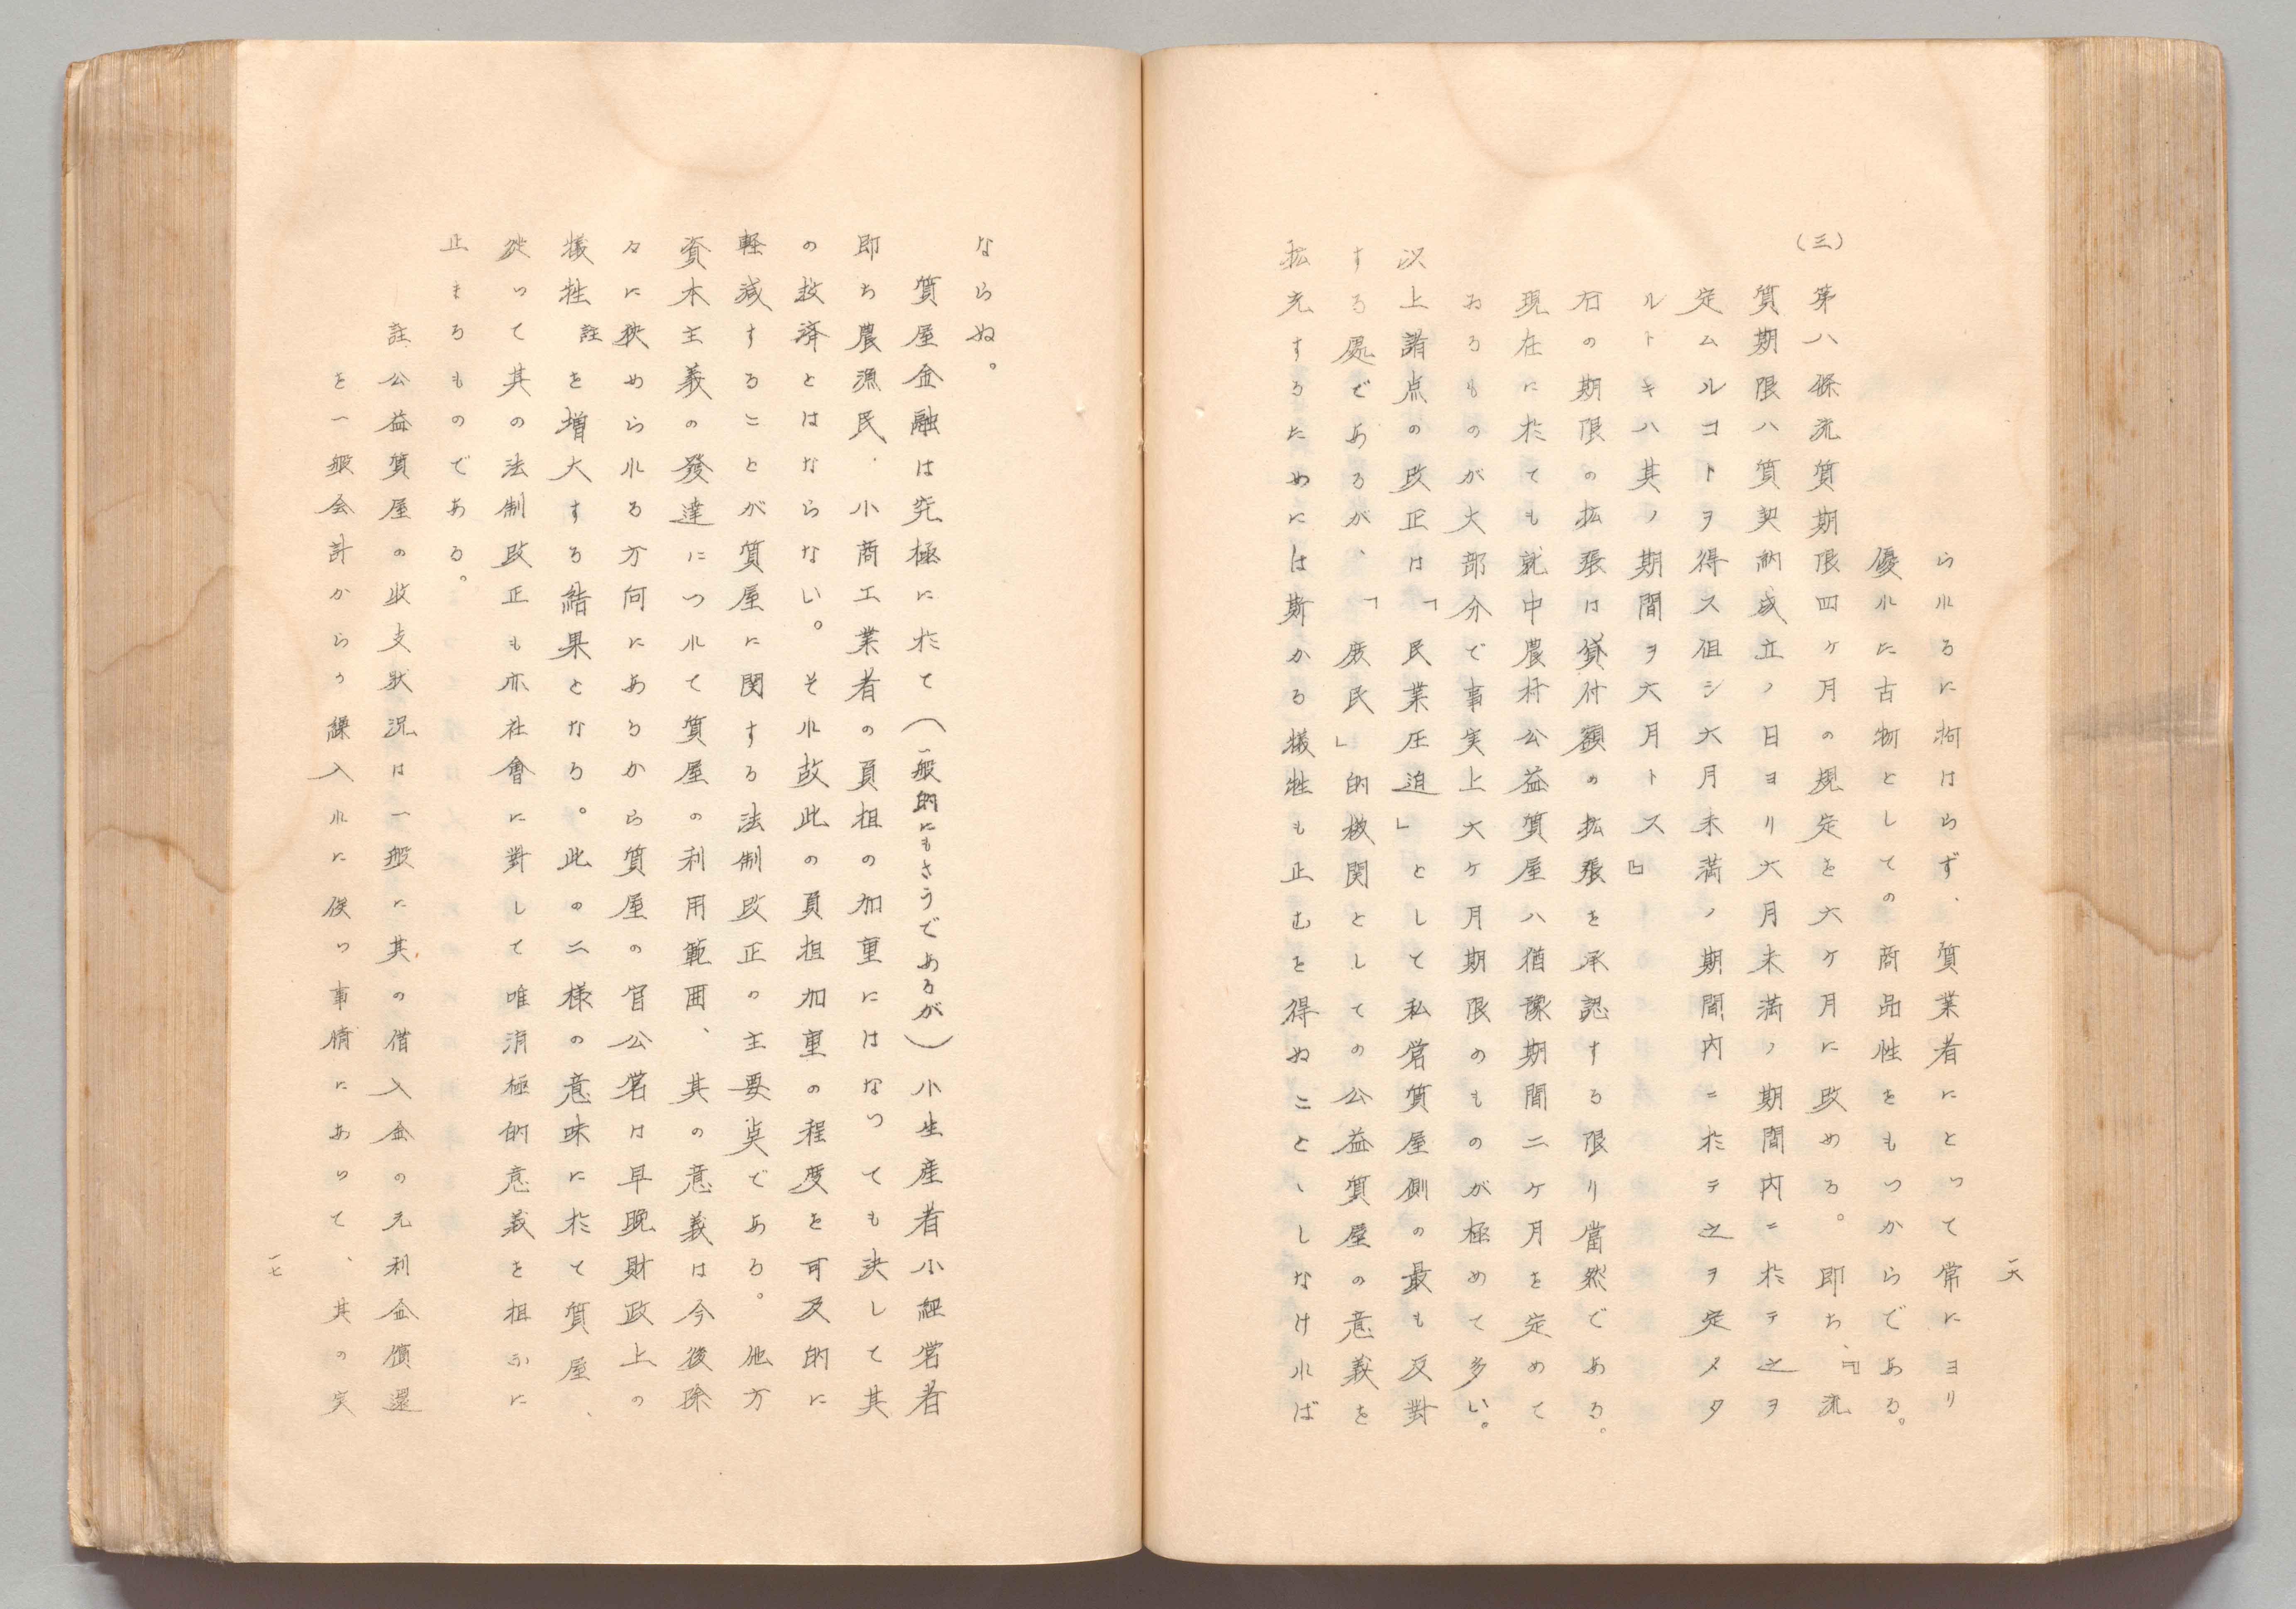 一六
られるに拘はらず、質業者にとって常にヨリ
優れた古物としての商品性をもつからである。
(三)第八條流質期限四ヶ月の規定を六ヶ月に改める。即ち、『流
質期限ハ質契約成立ノ日ヨリ六月未満ノ期間内ニ於テ之ヲ
定ムルコトヲ得ス但シ六月未満ノ期間内ニ於テ之ヲ定メタ
ルトキハ其ノ期間ヲ六月トス』
右の期限の拡張は貸付額の拡張を承認する限り當然である。
現在に於ても就中農村公益質屋ハ猶豫期間二ヶ月を定めて
おるものが大部分で事実上六ヶ月期限のものが極めて多い。
以上諸点の改正は「民業圧迫」として私営質屋側の最も反對
する處であるが、「庶民」的機関としての公益質屋の意義を
拡充するためには斯かる犠牲も止むを得ぬことゝしなければ
ならぬ。
質屋金融は究極に於て(一般的にもさうであるが)小生産者小経営者
即ち農漁民、小商工業者の負担の加重にはなっても決して其
の救済とはならない。それ故此の負担加重の程度を可及的に
軽減することが質屋に関する法制改正の主要点である。他方
資本主義の發達につれて質屋の利用範囲、其の意義は今後除
々に狭められる方向にあるから質屋の官公営は早晩財政上の
犠牲註を増大する結果となる。此の二様の意味に於て質屋、
従って其の法制改正も亦社會に對して唯消極的意義を担ふに
止まるものである。
註 公益質屋の收支狀況は一般に其の借入金の元利金償還
を一般会計からの繰入れに俟つ事情にあって、其の実
一七